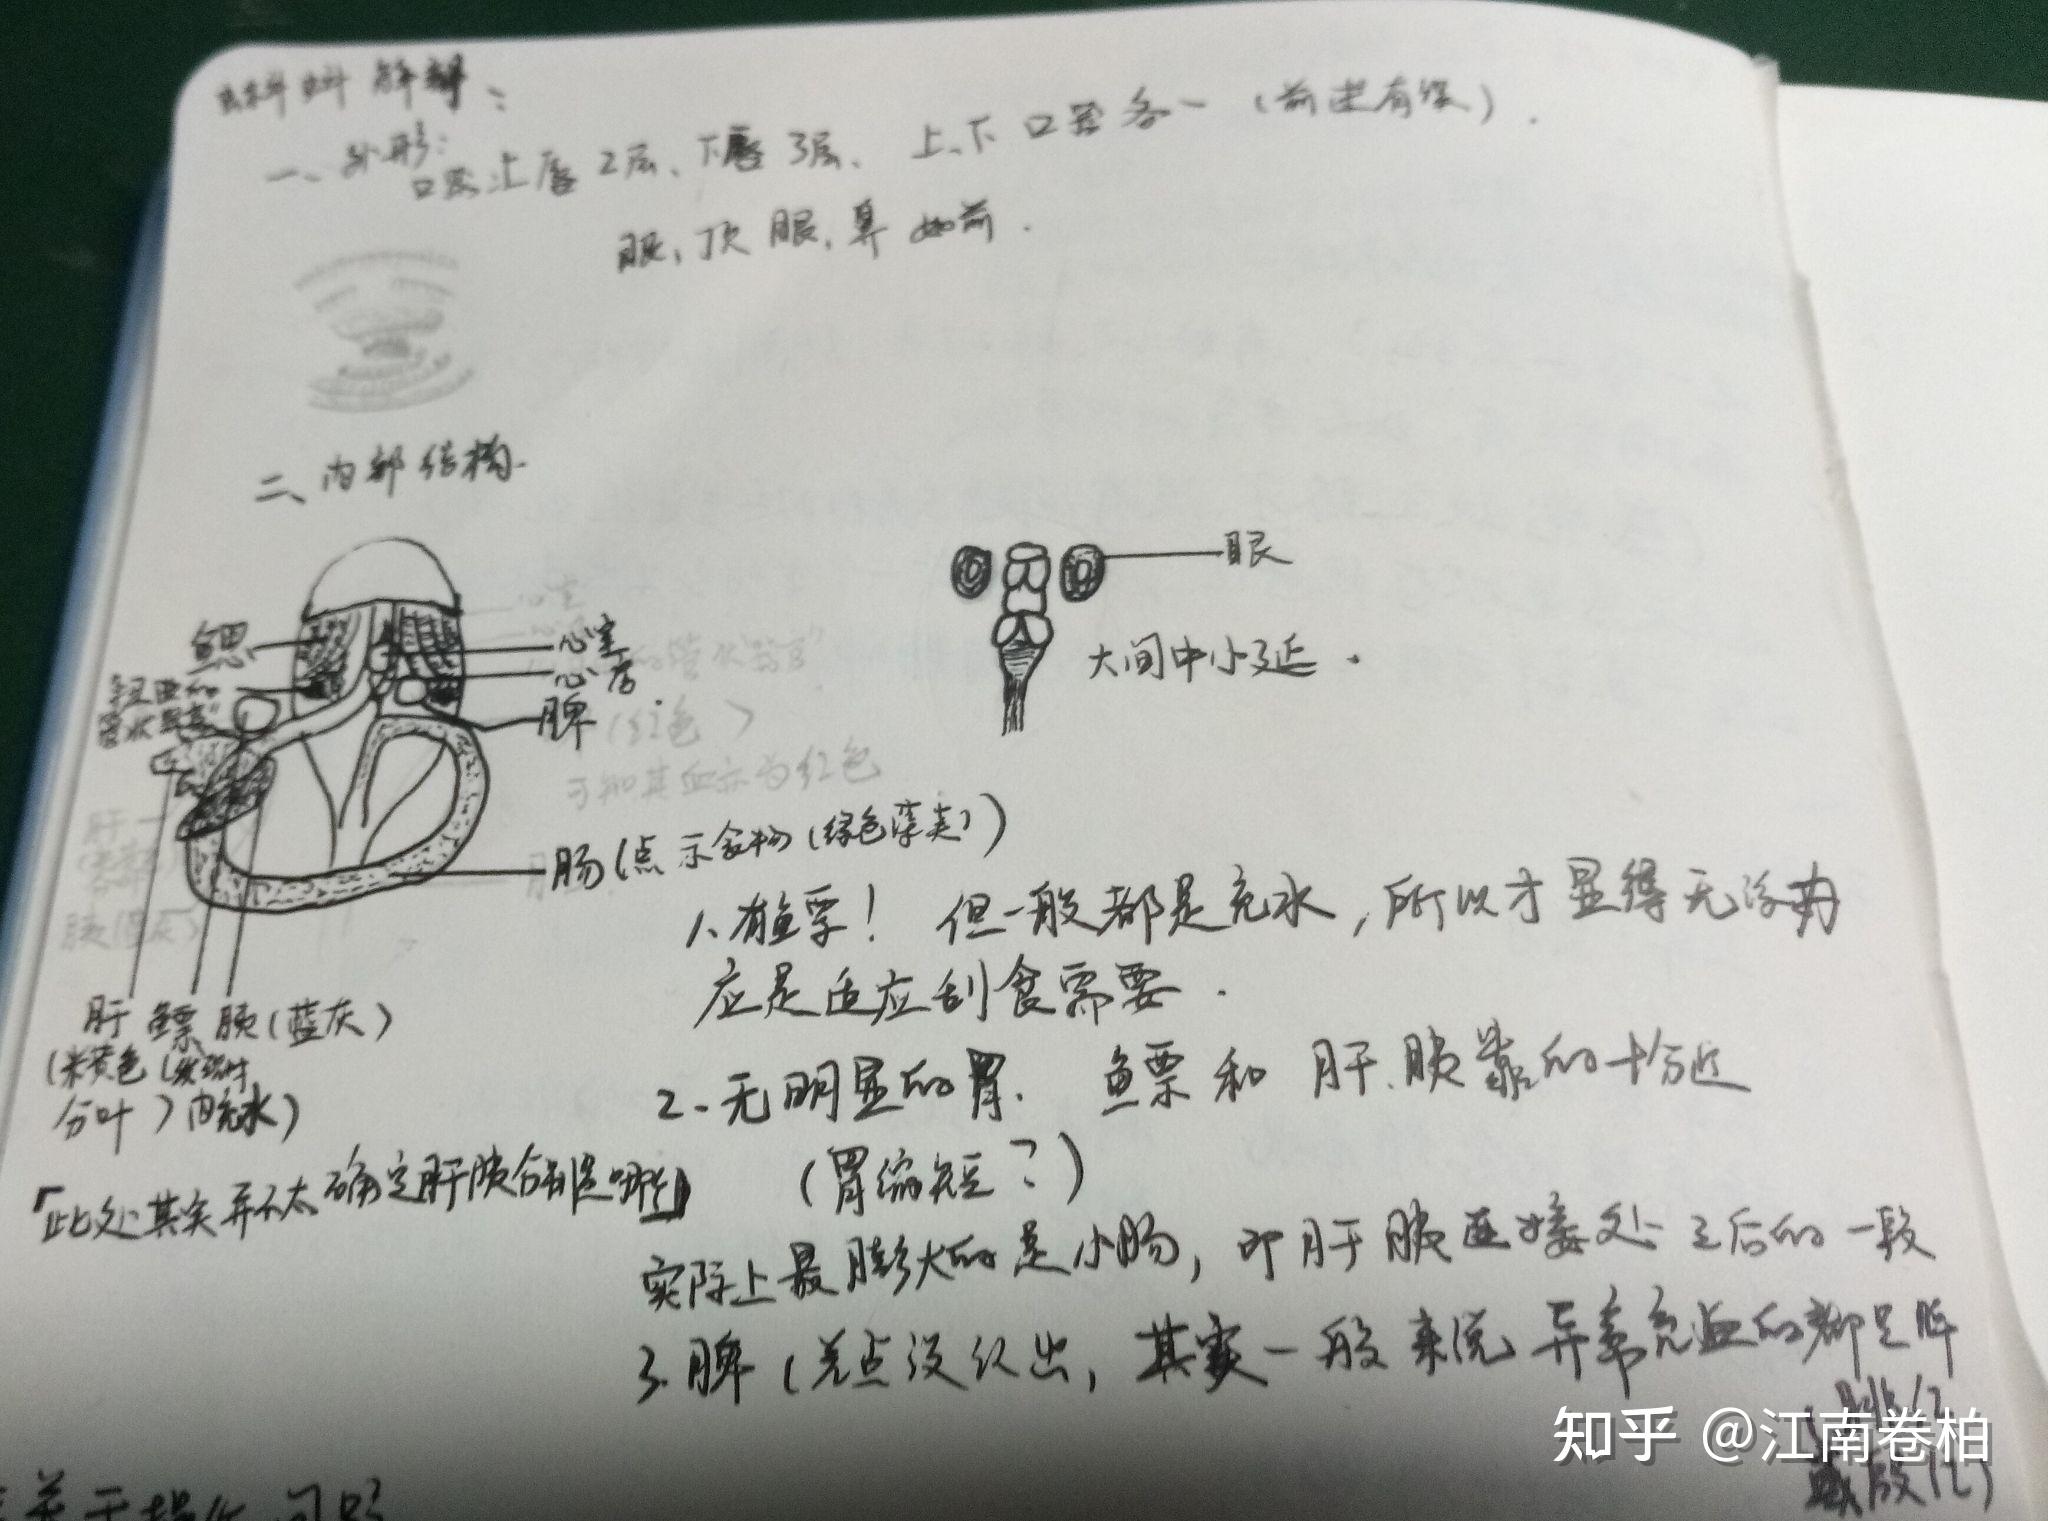 蝌蚪解剖：
一、外形：
口器上唇2层、下唇3层、上、下口器各一（前进有误）.
眼, 顶眼, 鼻如前.
二、内部结构.
鳃
心室
心房
脾
肠（点示食物（绿色藻类））
肝 鳔 胰（蓝灰）
（米黄色
分叶） 内充水）
「此处其实并不太确定肝胰分别是哪些」
眼
大间中小延.
（红色）
可知其血亦为红色
1、有鱼鳔！但一般都是充水, 所以才显得无浮力
应是适应刮食需要.
2.无明显的胃. 鱼鳔和肝、胰靠的十分近
（胃缩短？）
实际上最膨大的是小肠, 即肝胰连接处之后的一段
3.脾（差点没认出, 其实一般来说异常充血的都是脾
知乎 @江南卷柏